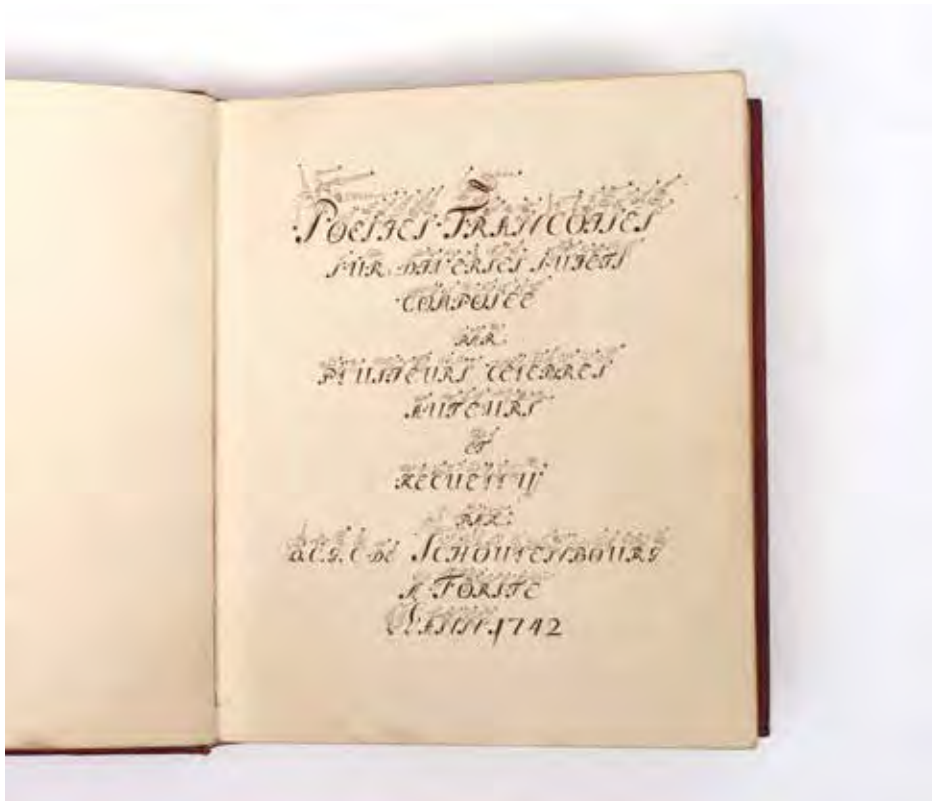 POESIES FRANCOISES
SUR DIVERSES SUIETS
COMPOSEE
PAR:
PLUSIEURS CELEBRES
AUTEURS
&
RECUEILLII
PAR:
A.C.G.C. DE SCHOULENBOURG
A FORSTE
L'ANN: 1742